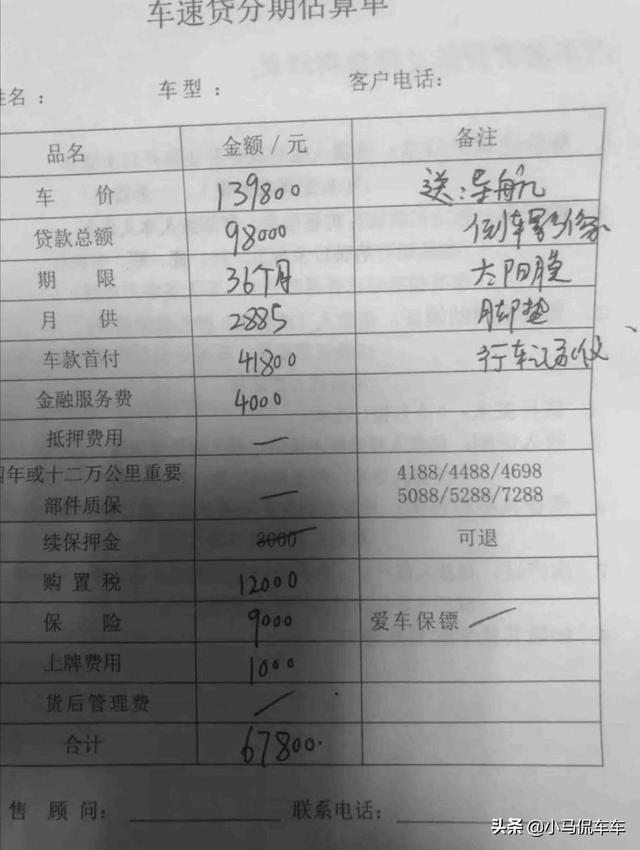 车速贷分期估算单
姓名： 车型： 客户电话：
品名 金额/元 备注
车 价 139800 送：导航
贷款总额 98000 倒车影像
期 限 36个月 太阳膜
月 供 2885 脚垫
车款首付 41800 行车记录仪、
金融服务费 4000
抵押费用 —
四年或十二万公里重要 4188/4488/4698
部件质保 — 5088/5288/7288
续保押金 3000 可退
购 置 税 12000
保 险 9000 爱车保镖 —
上牌费用 1000
货后管理费 /
合计 67800.
售 顾 问： 联系电话：
头条 @小马侃车车